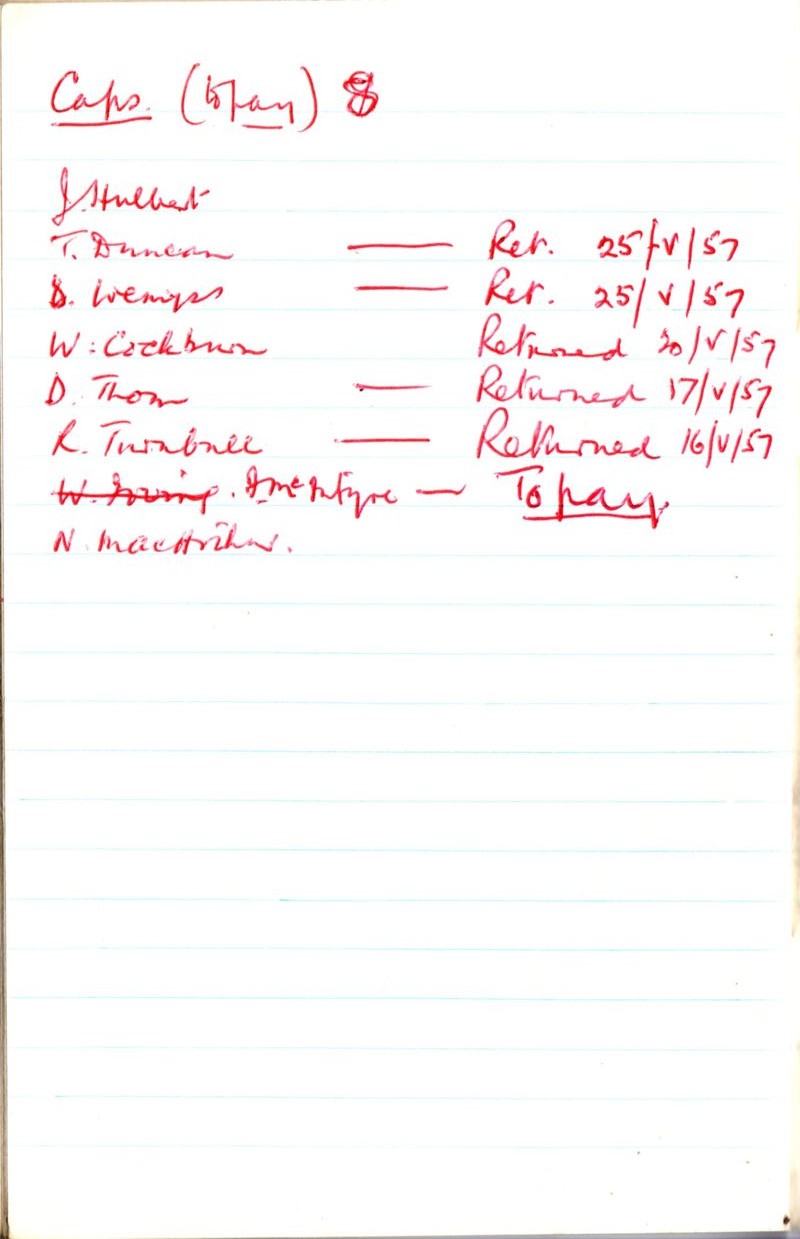 Caps. (to pay) 8
J. Hulbert
T. Duncan — Ret. 25/V/57
D. Wemyss — Ret. 25/V/57
W. Cockburn Returned 20/V/57
D. Thom — Returned 17/V/57
R. Turnbull — Returned 16/V/57
W. Irving. I. McIntyre — To pay.
N. MacArthur.